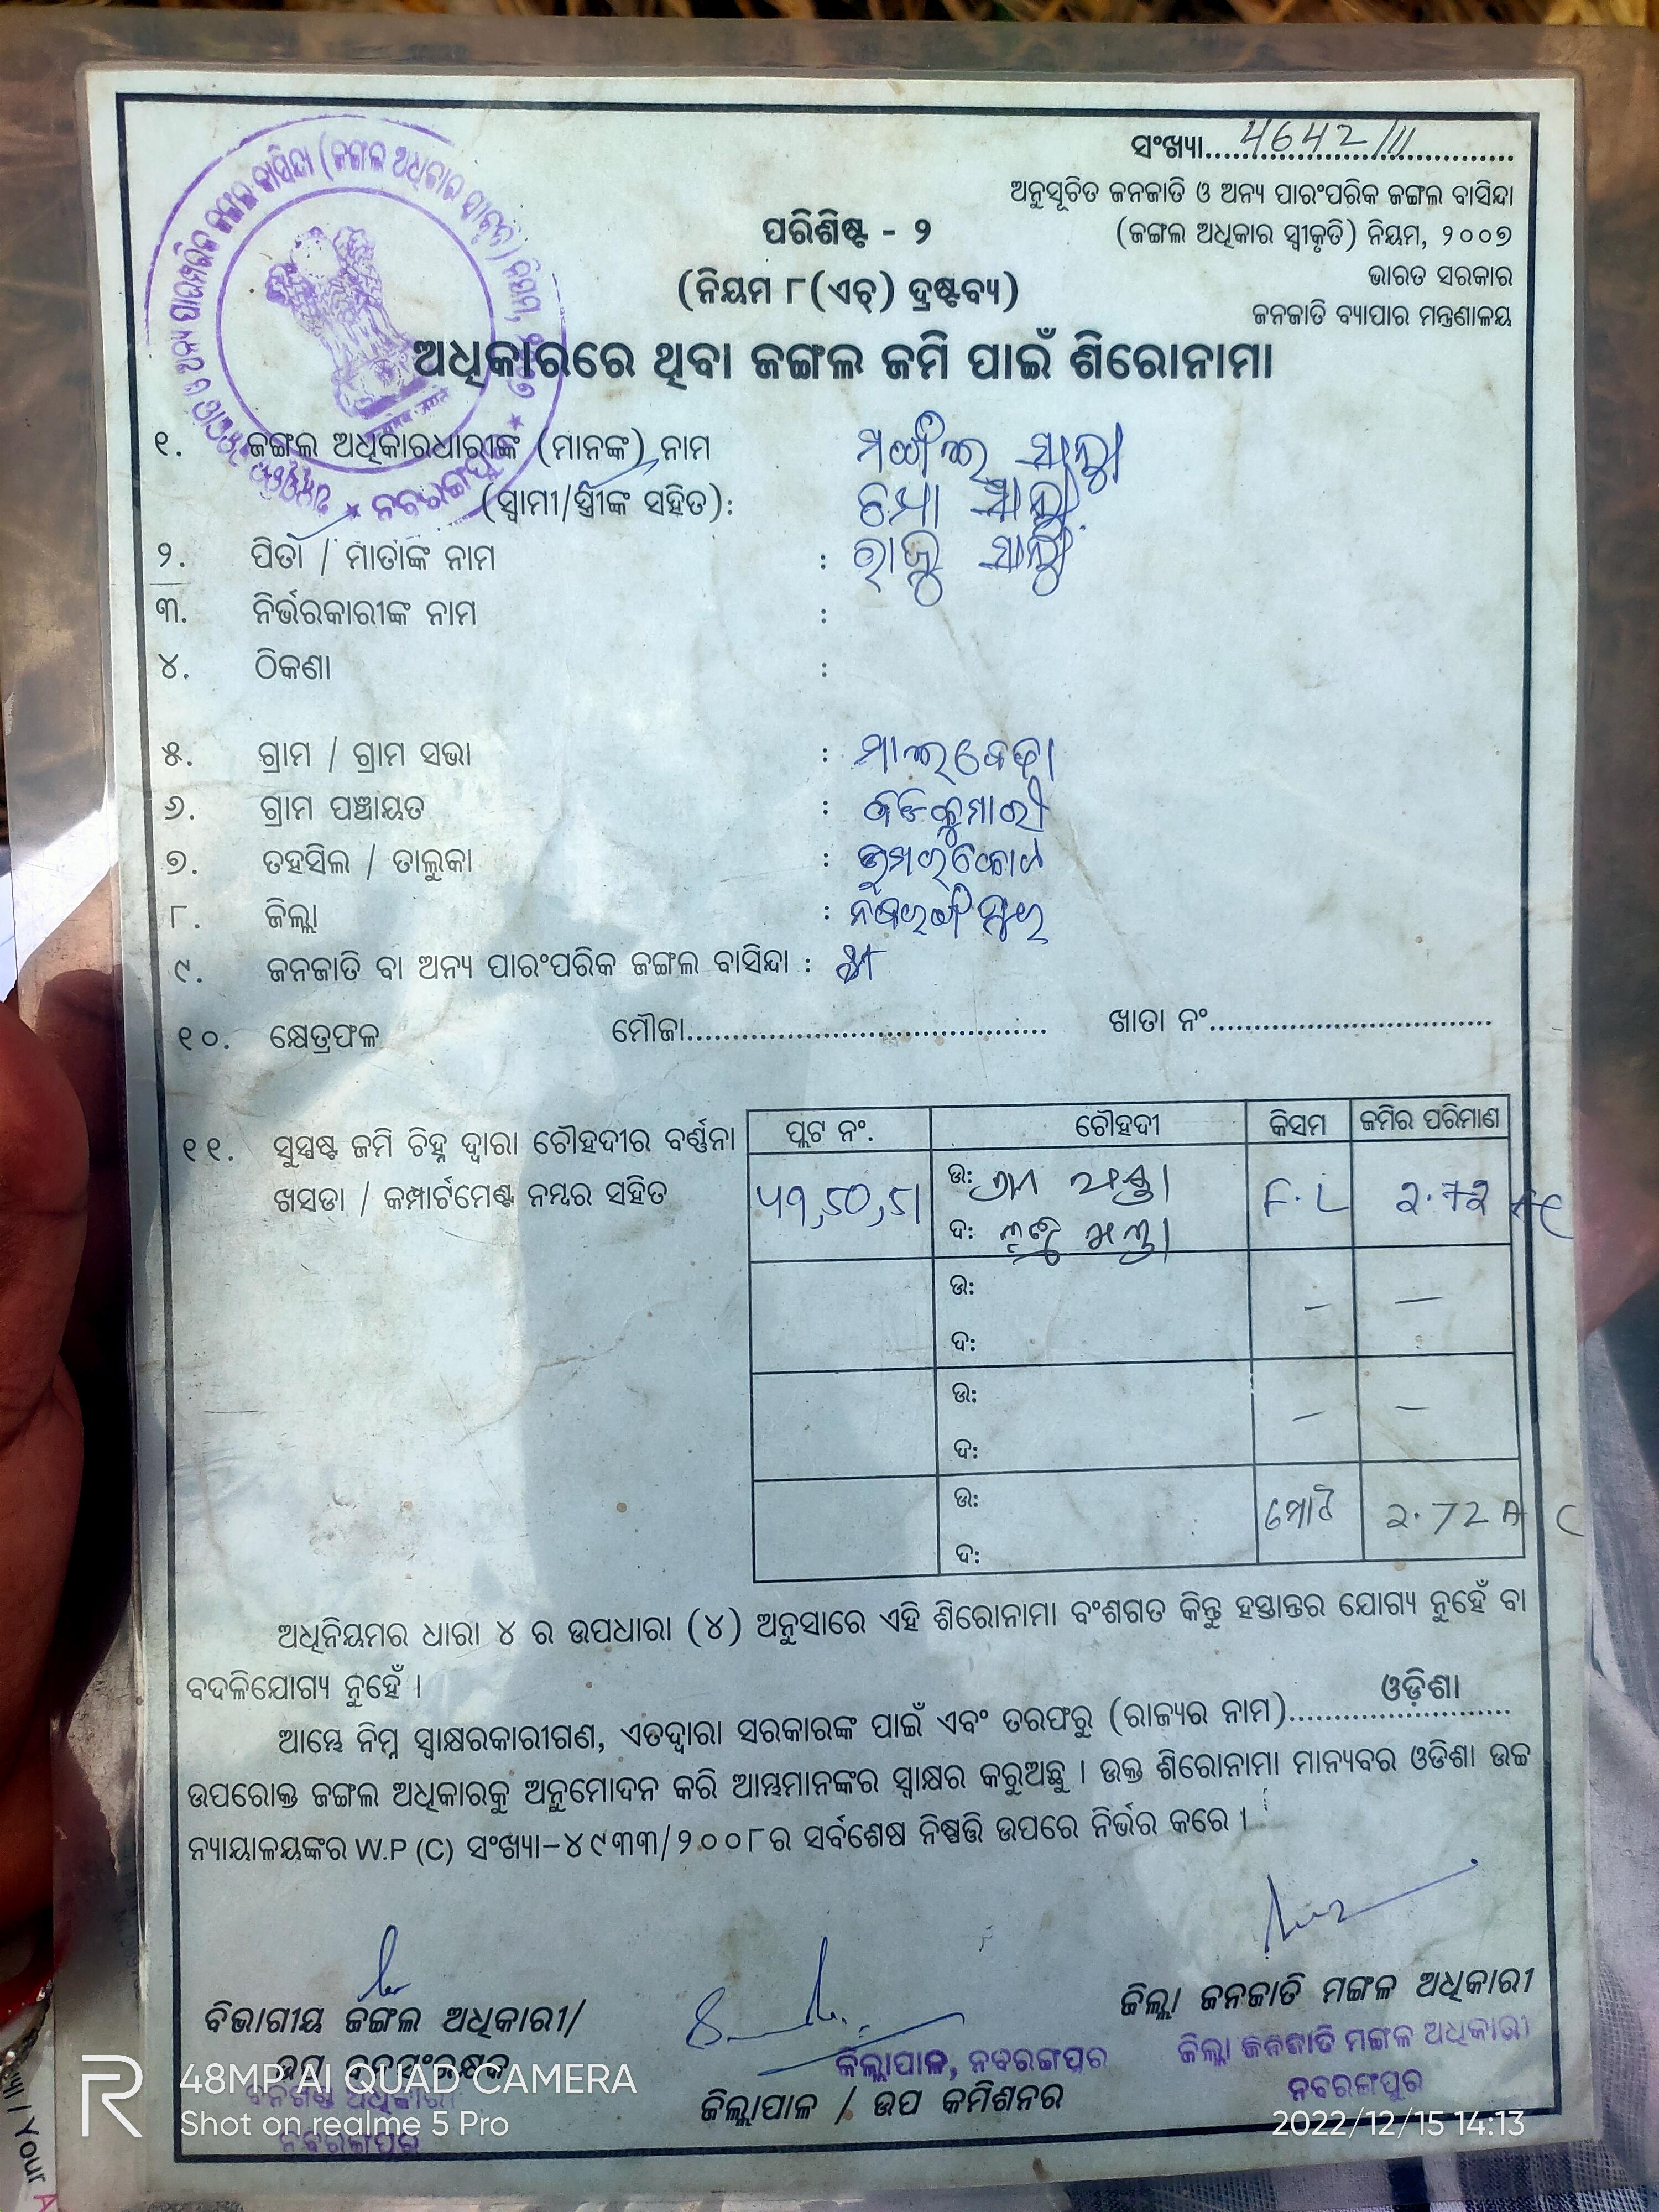 ସଂଖ୍ୟା............4642/111............
ଅନୁସୂଚିତ ଜନଜାତି ଓ ଅନ୍ୟ ପାରଂପରିକ ଜଙ୍ଗଲ ବାସିନ୍ଦା
(ଜଙ୍ଗଲ ଅଧିକାର ସ୍ୱୀକୃତି) ନିୟମ, ୨୦୦୭
ଭାରତ ସରକାର
ଜନଜାତି ବ୍ୟାପାର ମନ୍ତ୍ରଣାଳୟ
ପରିଶିଷ୍ଟ - ୨
(ନିୟମ ୮(ଏଚ୍) ଦ୍ରଷ୍ଟବ୍ୟ)
ଅଧିକାରରେ ଥିବା ଜଙ୍ଗଲ ଜମି ପାଇଁ ଶିରୋନାମା
୧. ଜଙ୍ଗଲ ଅଧିକାରଧାରୀଙ୍କ (ମାନଙ୍କ) ନାମ
(ସ୍ୱାମୀ/ସ୍ତ୍ରୀଙ୍କ ସହିତ):
୨. ପିତା / ମାତାଙ୍କ ନାମ :
୩. ନିର୍ଭରକାରୀଙ୍କ ନାମ :
୪. ଠିକଣା :
୫. ଗ୍ରାମ / ଗ୍ରାମ ସଭା : ମାଲବେଡ଼ା
୬. ଗ୍ରାମ ପଞ୍ଚାୟତ :
୭. ତହସିଲ / ତାଲୁକା : ଉମରକୋଟ
୮. ଜିଲ୍ଲା : ନବରଙ୍ଗପୁର
୯. ଜନଜାତି ବା ଅନ୍ୟ ପାରଂପରିକ ଜଙ୍ଗଲ ବାସିନ୍ଦା :
୧୦. କ୍ଷେତ୍ରଫଳ ମୌଜା........................................ ଖାତା ନଂ................................
୧୧. ସୁସ୍ପଷ୍ଟ ଜମି ଚିହ୍ନ ଦ୍ୱାରା ଚୌହଦୀର ବର୍ଣ୍ଣନା
ଖସଡା / କମ୍ପାର୍ଟମେଣ୍ଟ ନମ୍ବର ସହିତ
ପ୍ଲଟ ନଂ. ଚୌହଦୀ କିସମ ଜମିର ପରିମାଣ
ଉ: F.L ୨.72 AC
ଦ:
ଉ: — —
ଦ:
ଉ: — —
ଦ:
ଉ: ମୋଟ ୨.72 AC
ଦ:
ଅଧିନିୟମର ଧାରା ୪ ର ଉପଧାରା (୪) ଅନୁସାରେ ଏହି ଶିରୋନାମା ବଂଶଗତ କିନ୍ତୁ ହସ୍ତାନ୍ତର ଯୋଗ୍ୟ ନୁହେଁ ବା
ବଦଳିଯୋଗ୍ୟ ନୁହେଁ ।
ଆମ୍ଭେ ନିମ୍ନ ସ୍ୱାକ୍ଷରକାରୀଗଣ, ଏତଦ୍ୱାରା ସରକାରଙ୍କ ପାଇଁ ଏବଂ ତରଫରୁ (ରାଜ୍ୟର ନାମ)..........ଓଡ଼ିଶା..........
ଉପରୋକ୍ତ ଜଙ୍ଗଲ ଅଧିକାରକୁ ଅନୁମୋଦନ କରି ଆମ୍ଭମାନଙ୍କର ସ୍ୱାକ୍ଷର କରୁଅଛୁ । ଉକ୍ତ ଶିରୋନାମା ମାନ୍ୟବର ଓଡିଶା ଉଚ୍ଚ
ନ୍ୟାୟାଳୟଙ୍କର W.P (C) ସଂଖ୍ୟା-୪୯୩୩/୨୦୦୮ର ସର୍ବଶେଷ ନିଷ୍ପତ୍ତି ଉପରେ ନିର୍ଭର କରେ ।
ବିଭାଗୀୟ ଜଙ୍ଗଲ ଅଧିକାରୀ/
ଉପ ବନସଂରକ୍ଷକ
ନବରଙ୍ଗପୁର
ଜିଲ୍ଲାପାଳ, ନବରଙ୍ଗପୁର
ଜିଲ୍ଲାପାଳ / ଉପ କମିଶନର
ଜିଲ୍ଲା ଜନଜାତି ମଙ୍ଗଳ ଅଧିକାରୀ
ଜିଲ୍ଲା ଜନଜାତି ମଙ୍ଗଳ ଅଧିକାରୀ
ନବରଙ୍ଗପୁର
48MP AI QUAD CAMERA
Shot on realme 5 Pro
2022/12/15 14:13